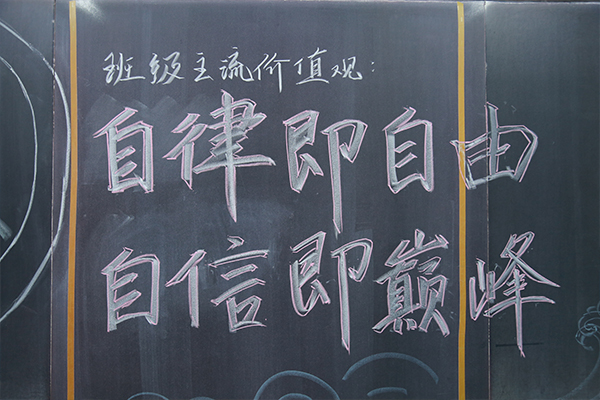 班级主流价值观:
自律即自由
自信即巅峰